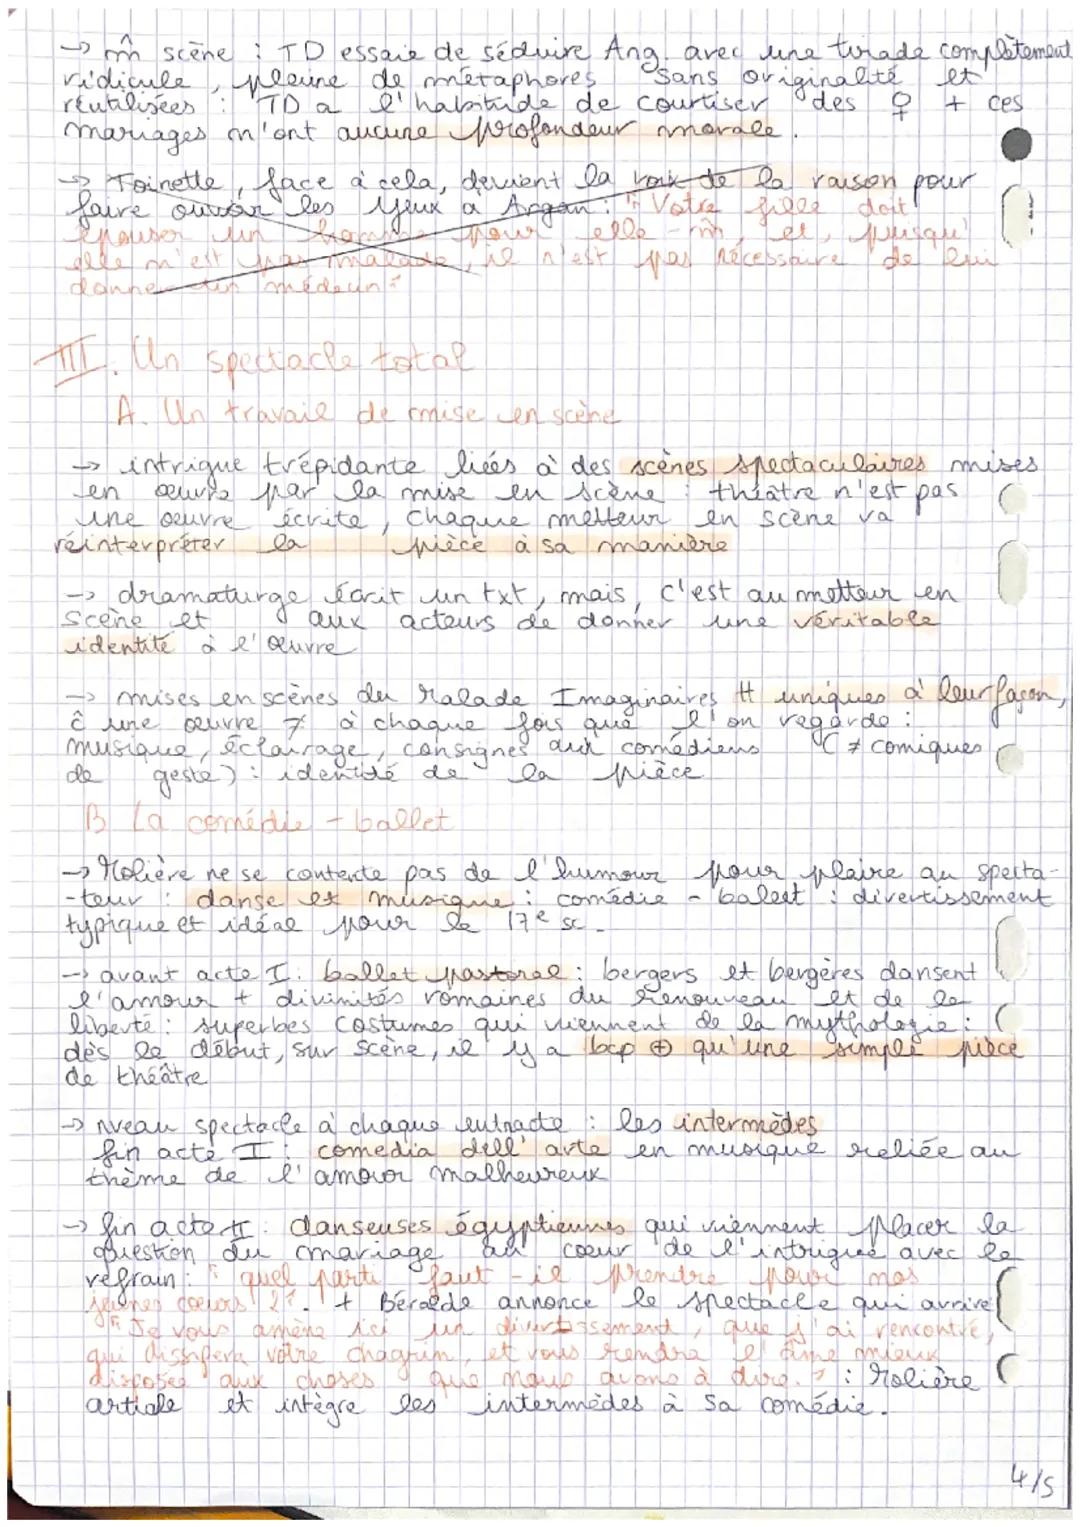 → m̂ scène : TD essaie de séduire Ang. avec une tirade complètement
ridicule, pleine de métaphores sans originalité et
réutilisées : TD a l'habitude de courtiser des ♀ + ces
mariages n'ont aucune profondeur morale.
→ Toinette, face à cela, devient la voix de la raison pour
faire ouvrir les yeux à Argan : "Votre fille doit
épouser un homme pour elle-m̂, et, puisqu'
elle n'est pas malade, il n'est pas nécessaire de lui
donner un médecin"
III. Un spectacle total
A. Un travail de mise en scène
→ intrigue trépidante liées à des scènes spectaculaires mises
en œuvre par la mise en scène : théâtre n'est pas
une œuvre écrite, chaque metteur en scène va
réinterpréter la pièce à sa manière
→ dramaturge écrit un txt, mais, c'est au metteur en
scène et aux acteurs de donner une véritable
identité à l'œuvre
→ mises en scènes du Malade Imaginaires tt uniques à leur façon,
ĉ une œuvre ≠ à chaque fois que l'on regarde :
musique, éclairage, consignes aux comédiens (≠ comiques
de geste) : identité de la pièce
B La comédie-ballet
→ Molière ne se contente pas de l'humour pour plaire au specta-
-teur : danse et musique : comédie-ballet : divertissement
typique et idéal pour le 17e sc.
→ avant acte I : ballet pastoral : bergers et bergères dansent
l'amour + divinités romaines du renouveau et de la
liberté : superbes costumes qui viennent de la mythologie :
dès le début, sur scène, il y a bcp ⊕ qu'une simple pièce
de théâtre
→ nveau spectacle à chaque entracte : les intermèdes
fin acte I : comedia dell'arte en musique reliée au
thème de l'amour malheureux
→ fin acte II : danseuses égyptiennes qui viennent placer la
question du mariage au cœur de l'intrigue avec le
refrain : "quel parti faut-il prendre pour nos
jeunes cœurs ?". + Béralde annonce le spectacle qui arrive
"Je vous amène ici un divertissement, que j'ai rencontré,
qui dissipera votre chagrin, et vous rendra l'âme mieux
disposée aux choses que nous avons à dire." : Molière
article et intègre les intermèdes à sa comédie.
4/5